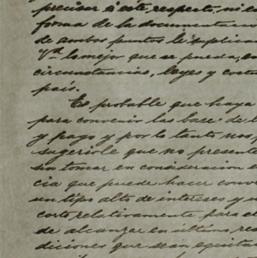 precisar si este, respecto, ni en
forma de la documentacion
de ambos puntos le suplica
Vd lo mejor que se pueda, en
circunstancias, leyes y cost
país.
Es probable que haya
para convenir las bases de l
y pago y por lo tanto nos,
sugerirle que no presente
sin tomar en consideracion e
cia que puede hacer conve
un tipo alto de intereses y u
corto, relativamente para el
de alcanzar en último, res
diciones que sean